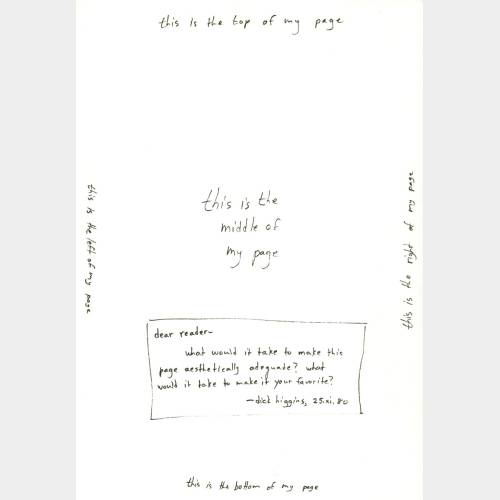 this is the top of my page
this is the left of my page
this is the
middle of
my page
this is the right of my page
dear reader—
what would it take to make this
page aesthetically adequate? what
would it take to make it your favorite?
—dick higgins, 25.xi.80
this is the bottom of my page